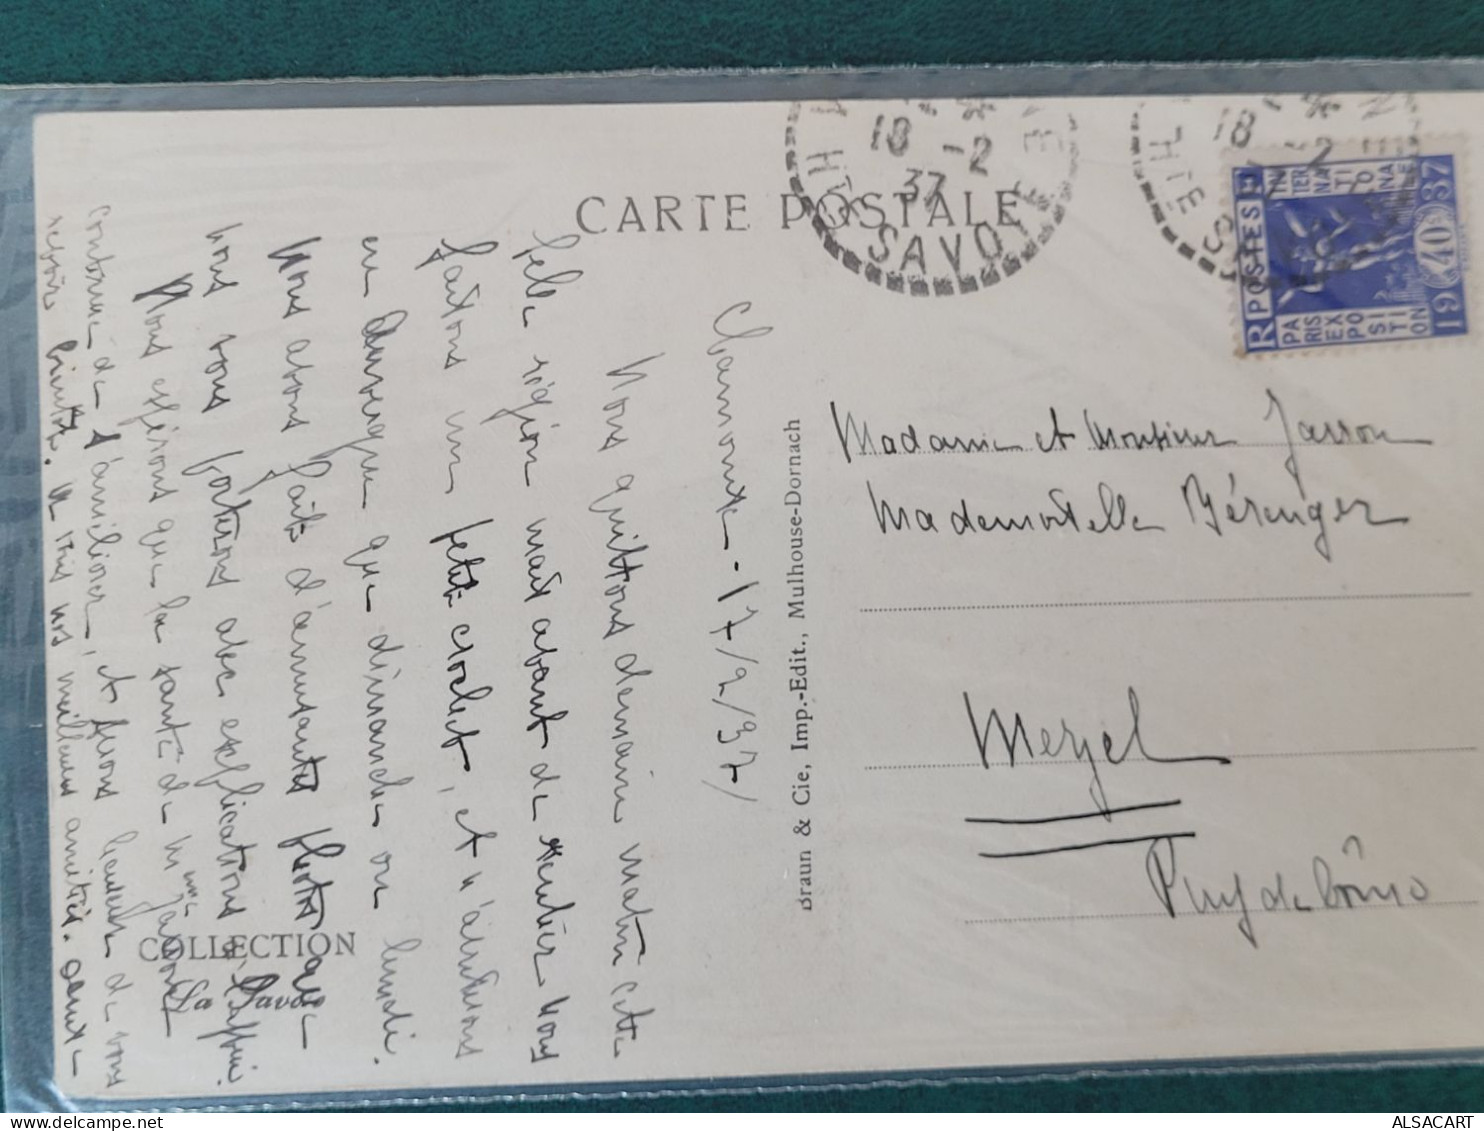 CARTE POSTALE
18 -2
37
SAVOIE
Hte SAVOIE
18 -2
RF POSTES
INTERNATIONA
PARIS EXPOSITION
1937
40c
Chamonix - 17/2/37/
Nous quittons demain matin cette
belle région mais avant de rentrer nous
faisons un petit crochet, et n'arriverons
en Auvergne que dimanche ou lundi.
Nous avons fait d'amusantes photos que
nous vous porterons avec explications à l'appui.
Nous espérons que la santé de Mme Jarron
continue de s'améliorer, et ferons de vous
revoir bientôt. nos meilleures amitiés.
COLLECTION
La Savoie
Braun & Cie, Imp.-Edit., Mulhouse-Dornach
Madame et Monsieur Jarron
Mademoiselle Bérenger
Mezel
Puy de Dôme
ALSACART